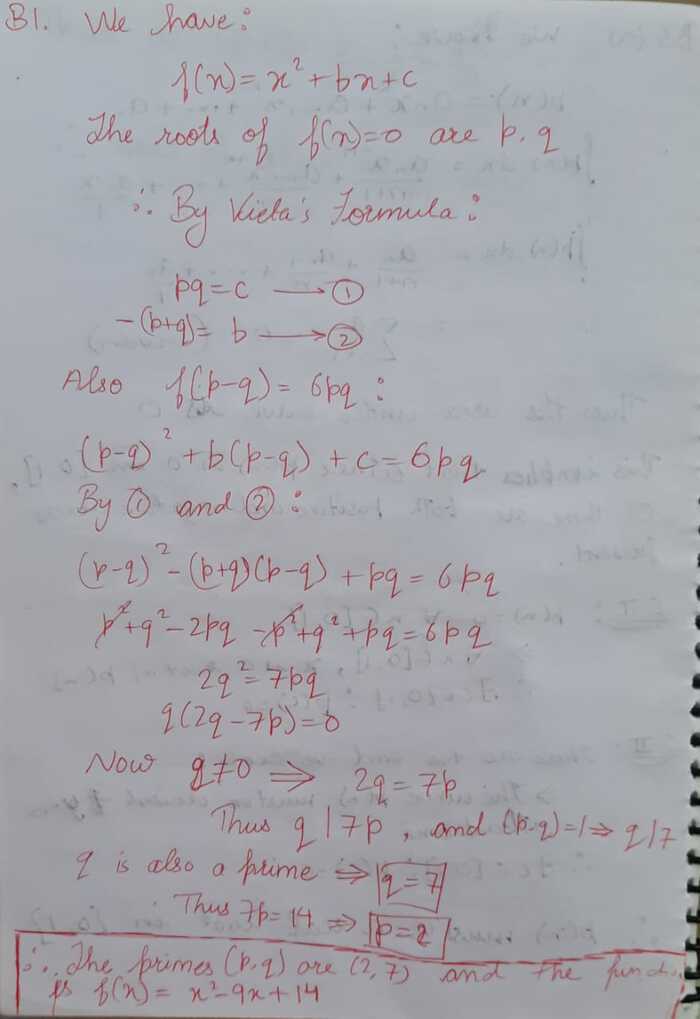 B1. We have:
f(x) = x² + bx + c
The roots of f(x)=0 are p, q
∴ By Vieta's Formula:
pq = c → ①
-(p+q) = b → ②
Also f(p-q) = 6pq :
(p-q)² + b(p-q) + c = 6pq
By ① and ② :
(p-q)² - (p+q)(p-q) + pq = 6pq
p² + q² - 2pq - p² + q² + pq = 6pq
2q² = 7pq
q(2q-7p) = 0
Now q ≠ 0 ⇒ 2q = 7p
Thus q | 7p, and (p,q)=1 ⇒ q|7
q is also a prime ⇒ q = 7
Thus 7p = 14 ⇒ p = 2
∴ The primes (p,q) are (2,7) and the
f(x) = x² - 9x + 14